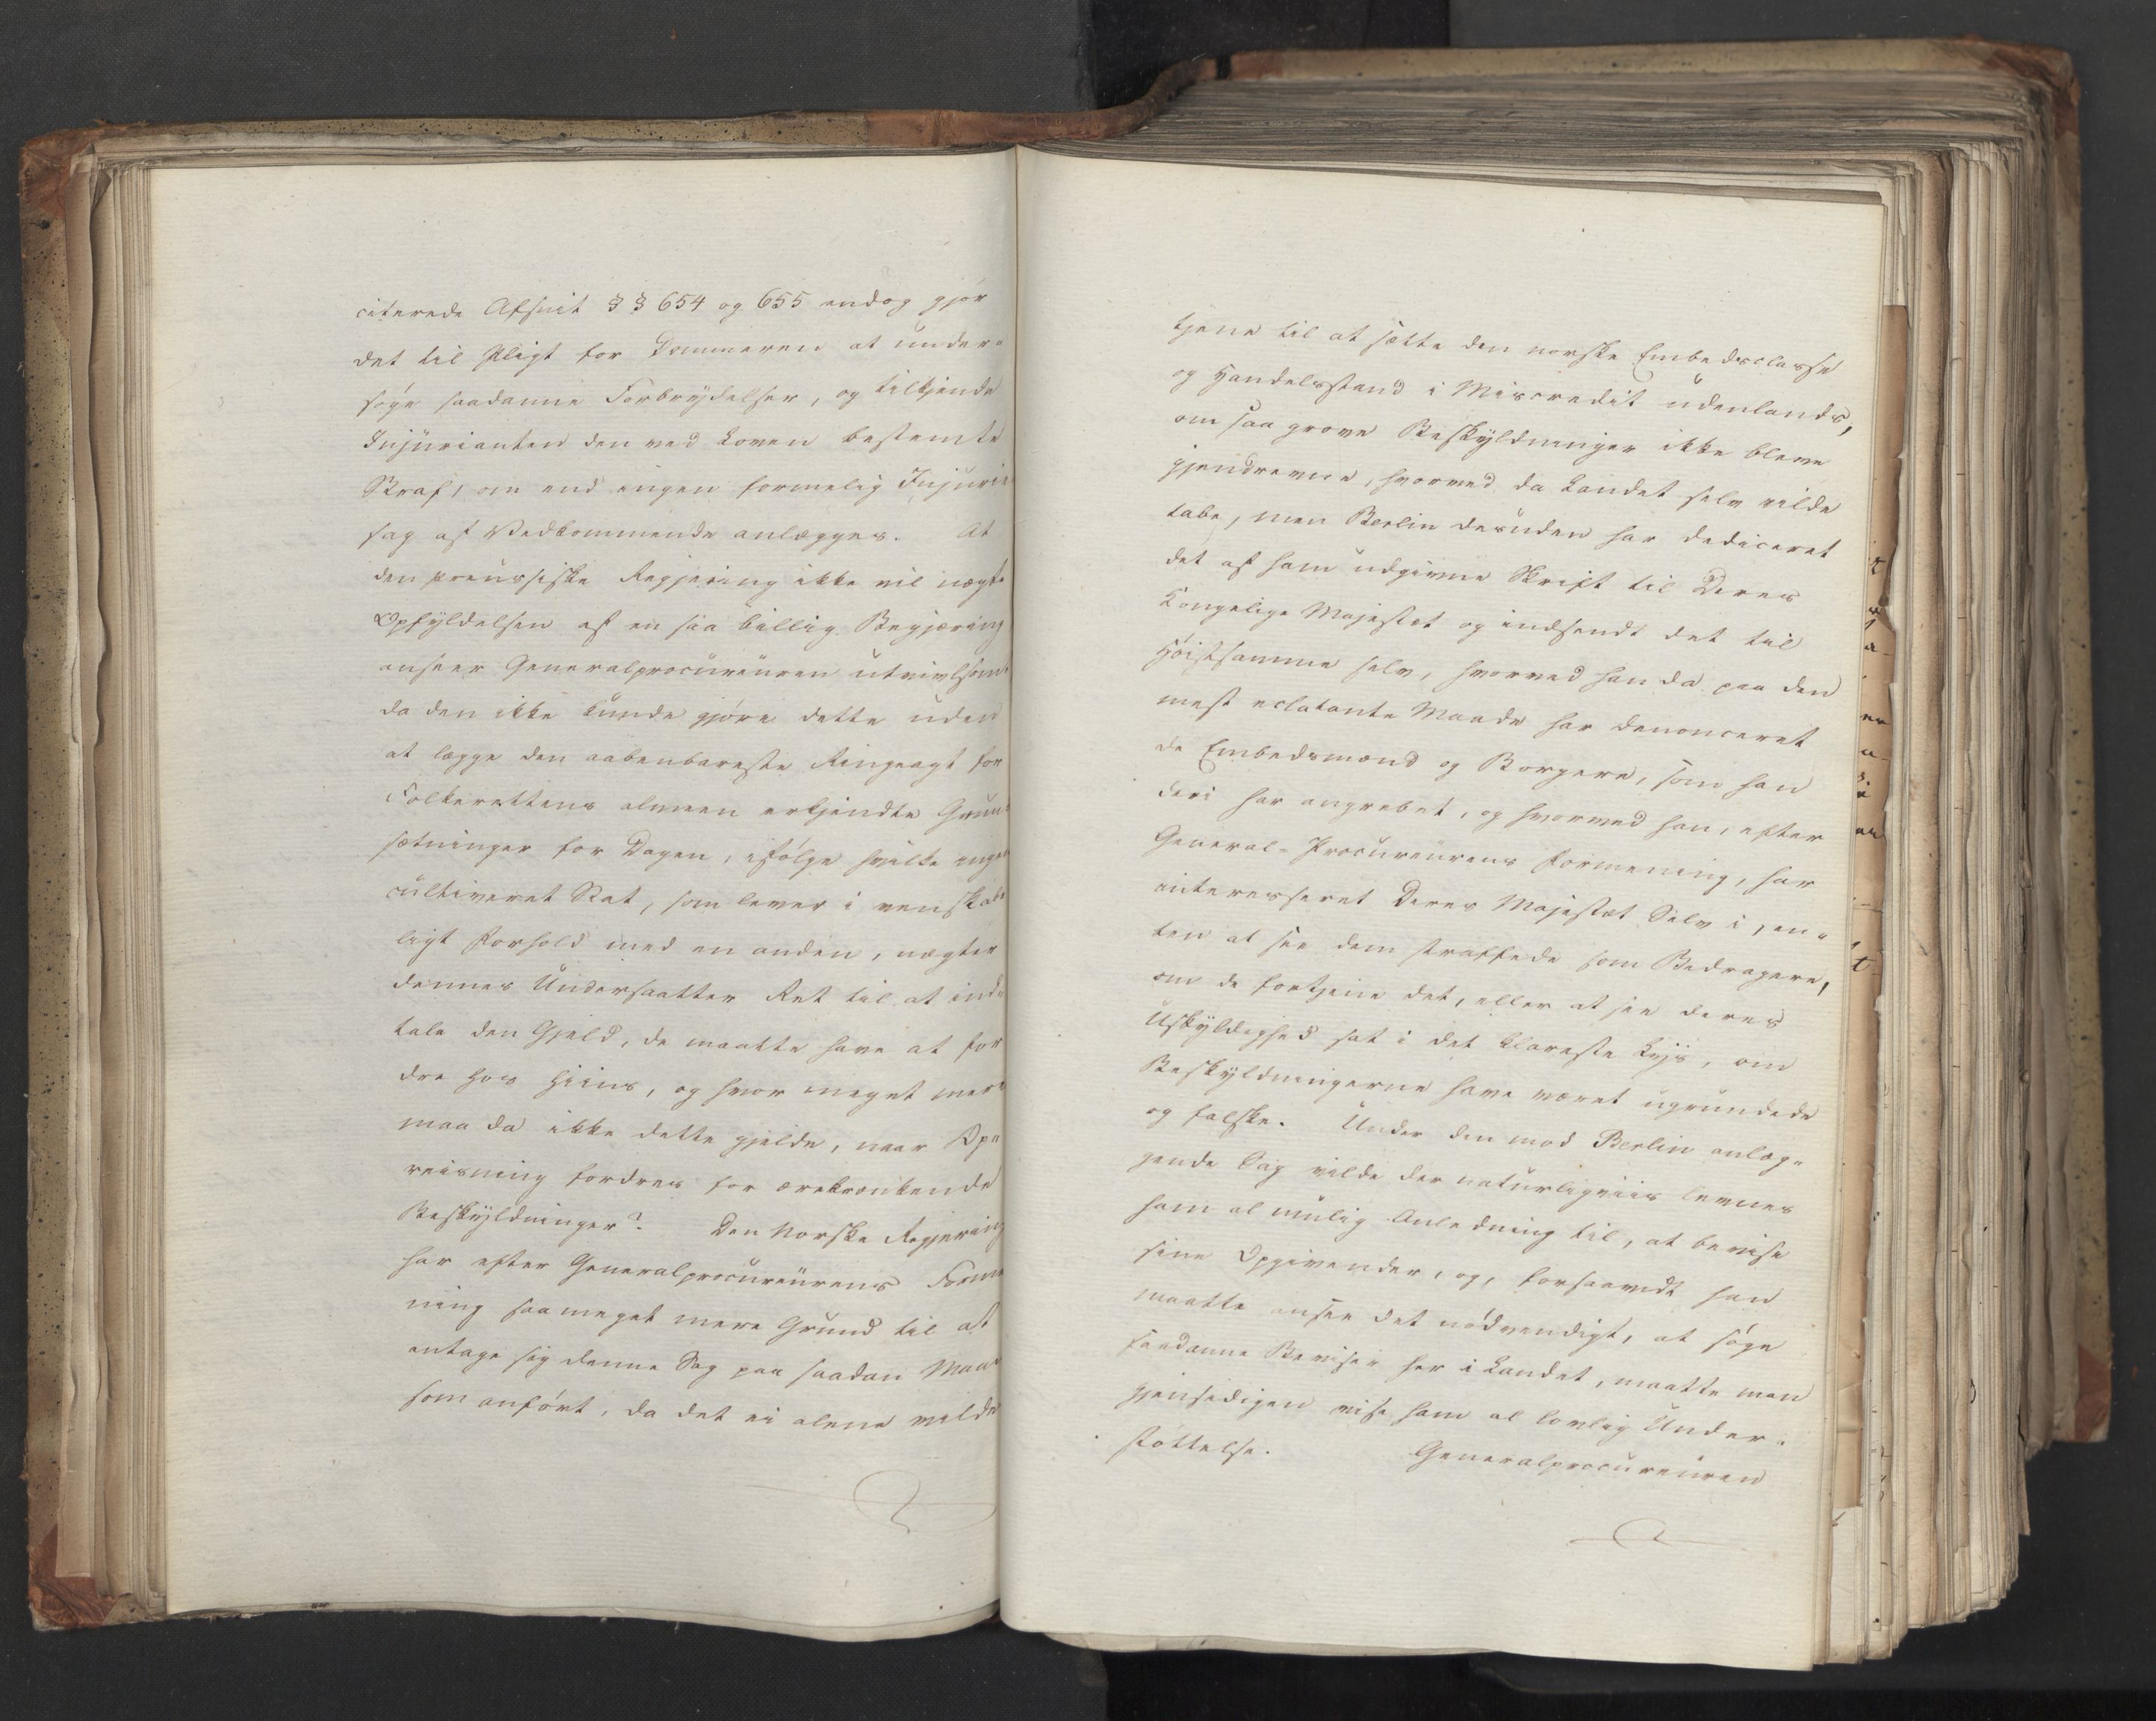 citerede Afsnit §§ 654 og 655 endog gjør
det til Pligt for Dommeren at under-
søge saadanne Forbrydelser, og tilkjende
Injurianten den ved Loven bestemte
Straf, om end ingen formelig Injurie
sag af Vedkommende anlægges. At
den preussiske Regjering ikke vil nægte
Opfyldelsen af en saa billig Begjæring
anseer Generalprocureuren utvivlsomt
da den ikke kunde gjøre dette uden
at lægge den aabenbareste Ringeagt for
Folkerettens almeen erkjendte Grund
sætninger for Dagen, ifølge hvilke ingen
cultiveret Stat, som lever i venskabe
ligt Forhold med en anden, nægter
dennes Undersaatter Ret til at ind-
tale den Gjeld, de maatte have at for
dre hos Hiins, og hvor meget mere
maa da ikke dette gjelde, naar Op-
reisning fordres for ærekrænkende
Beskyldninger? Den Norske Regjering
har efter Generalprocureurens Forme
ning saameget mere Grund til at
antage sig denne Sag paa saadan Maade
som anført, da det ei alene vilde
tjene til at sætte den norske Embedsclasse
og Handelsstand i Miscredit udenlands,
om saa grove Beskyldninger ikke bleve
gjendrevne, hvorved da Landet selv vilde
tabe, men Berlin desuden har dediceret
det af ham udgivne Skrift til Deres
Kongelige Majestæt og indsendt det til
Høistsamme selv, hvorved han da paa den
mest eclatante Maade har denonceret
de Embedsmænd og Borgere, som han
deri har angrebet, og hvorved han, efter
General-Procureurens Formening, har
interesseret Deres Majestæt Selv i, en-
ten at see dem straffede som Bedragere,
om de fortjene det, eller at see deres
Uskyldighed sat i det klareste Lys, om
Beskyldningerne have været ugrundede
og falske. Under den mod Berlin anlæg-
gende Sag vilde der naturligviis levnes
ham al mulig Anledning til, at bevise
sine Opgivender, og, forsaavidt han
maatte ansee det nødvendigt, at søge
saadanne Beviser her i Landet, maatte man
gjensidigen vise ham al lovlig Under-
støttelse. Generalprocureuren